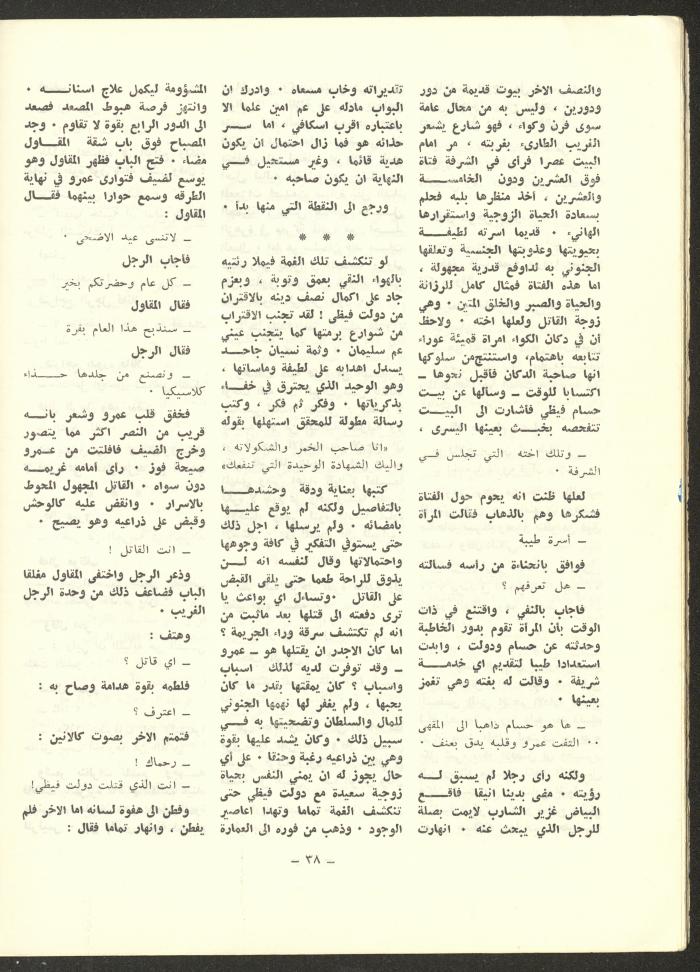 والنصف الاخر بيوت قديمة من دور
ودورين ، وليس به من محال عامة
سوى فرن وكواء ، فهو شارع يشعر
الغريب الطارىء بغربته ، مر امام
البيت عصرا فرأى في الشرفة فتاة
فوق العشرين ودون الخامسة
والعشرين ، أخذ منظرها بلبه فحلم
بسعادة الحياة الزوجية واستقرارها
الهانيء ٠ قديما اسرته لطيفة
بحيويتها وعذوبتها الجنسية وتعلقها
الجنوني به لدوافع قدرية مجهولة ،
اما هذه الفتاة فمثال كامل للرزانة
والحياة والصبر والخلق المتين ٠ وهي
زوجة القاتل ولعلها اخته ٠ ولاحظ
أن في دكان الكواء امرأة قميئة عوراء
تتابعه باهتمام، واستنتج من سلوكها
انها صاحبة الدكان فأقبل نحوها ــ
اكتسابا للوقت ــ وسألها عن بيت
حسام فيظي فأشارت الى البيت
تتفحصه بخبث بعينها اليسرى ،
ــ وتلك اخته التي تجلس في
الشرفة ٠
لعلها ظنت انه يحوم حول الفتاة
فشكرها وهم بالذهاب فقالت المرأة
ــ أسرة طيبة
فوافق بانحناءة من رأسه فسألته
ــ هل تعرفهم ؟
فأجاب بالنفي ، واقتنع في ذات
الوقت بأن المرأة تقوم بدور الخاطبة
وحدثته عن حسام ودولت ، وابدت
استعدادا طيبا لتقديم اي خدمة
شريفة ٠ وقالت له بغتة وهي تغمز
بعينها ٠
ــ ها هو حسام ذاهبا الى المقهى
٠٠ التفت عمرو وقلبه يدق بعنف ٠
ولكنه رأى رجلا لم يسبق له
رؤيته ٠ مضى بدينا انيقا فاقع
البياض غزير الشارب لايمت بصلة
للرجل الذي يبحث عنه ٠ انهارت
تقديراته وخاب مسعاه ٠ وادرك ان
البواب مادله على عم امين علما الا
باعتباره اقرب اسكافي ، اما سر
حذائه هو فما زال احتمال ان يكون
هدية قائما ، وغير مستحيل في
النهاية ان يكون صاحبه ٠
ورجع الى النقطة التي منها بدأ ٠
* * *
لو تنكشف تلك الغمة فيملأ رئتيه
بالهواء النقي بعمق وتوبة ، وبعزم
جاد على اكمال نصف دينه بالاقتران
من دولت فيظي ! لقد تجنب الاقتراب
من شوارع برمتها كما يتجنب عيني
عم سليمان ٠ وثمة نسيان جاحد
يسدل اهدابه على لطيفة ومأساتها ،
وهو الوحيد الذي يحترق في خفاء
بذكرياتها ٠ وفكر ثم فكر ، وكتب
رسالة مطولة للمحقق استهلها بقوله
«انا صاحب الخمر والشكولاته ،
واليك الشهادة الوحيدة التي تنفعك»
كتبها بعناية ودقة وحشدها
بالتفاصيل ولكنه لم يوقع عليها
بامضائه ٠ ولم يرسلها ، اجل ذلك
حتى يستوفي التفكير في كافة وجوهها
واحتمالاتها وقال لنفسه انه لن
يذوق للراحة طعما حتى يلقى القبض
على القاتل ٠ وتساءل اي بواعث يا
ترى دفعته الى قتلها بعد ماثبت من
انه لم تكتشف سرقة وراء الجريمة ؟
اما كان الاجدر ان يقتلها هو ــ عمرو
ــ وقد توفرت لديه لذلك اسباب
واسباب ؟ كان يمقتها بقدر ما كان
يحبها ، ولم يغفر لها نهمها الجنوني
للمال والسلطان وتضحيتها به في
سبيل ذلك ٠ وكان يشد عليها بقوة
وهي بين ذراعيه رغبة وحنقا ٠ على أي
حال يجوز له ان يمني النفس بحياة
زوجية سعيدة مع دولت فيظي حتى
تنكشف الغمة تماما وتهدأ اعاصير
الوجود ٠ وذهب من فوره الى العمارة
المشؤومة ليكمل علاج اسنانه ٠
وانتهز فرصة هبوط المصعد فصعد
الى الدور الرابع بقوة لا تقاوم ٠ وجد
المصباح فوق باب شقة المقاول
مضاء ٠ فتح الباب فظهر المقاول وهو
يوسع لضيف فتوارى عمرو في نهاية
الطرقه وسمع حوارا بينهما فقال
المقاول :
ــ لاتنسى عيد الاضحى ٠
فأجاب الرجل
ــ كل عام وحضرتكم بخير
فقال المقاول
ــ سنذبح هذا العام بقرة
فقال الرجل
ــ ونصنع من جلدها حذاء
كلاسيكيا ٠
فخفق قلب عمرو وشعر بانه
قريب من النصر اكثر مما يتصور
وخرج الضيف فافلتت من عمرو
صيحة فوز ٠ رأى أمامه غريمه
دون سواه ٠ القاتل المجهول المحوط
بالاسرار ٠ وانقض عليه كالوحش
وقبض على ذراعيه وهو يصيح ٠
ــ انت القاتل !
وذعر الرجل واختفى المقاول مغلقا
الباب فضاعف ذلك من وحدة الرجل
الغريب ٠
وهتف :
ــ اي قاتل ؟
فلطمه بقوة هدامة وصاح به :
ــ اعترف ؟
فتمتم الآخر بصوت كالانين :
ــ رحماك !
ــ انت الذي قتلت دولت فيظي!
وفطن الى هفوة لسانه اما الاخر فلم
يفطن ، وانهار تماما فقال :
ــ ٣٨ ــ